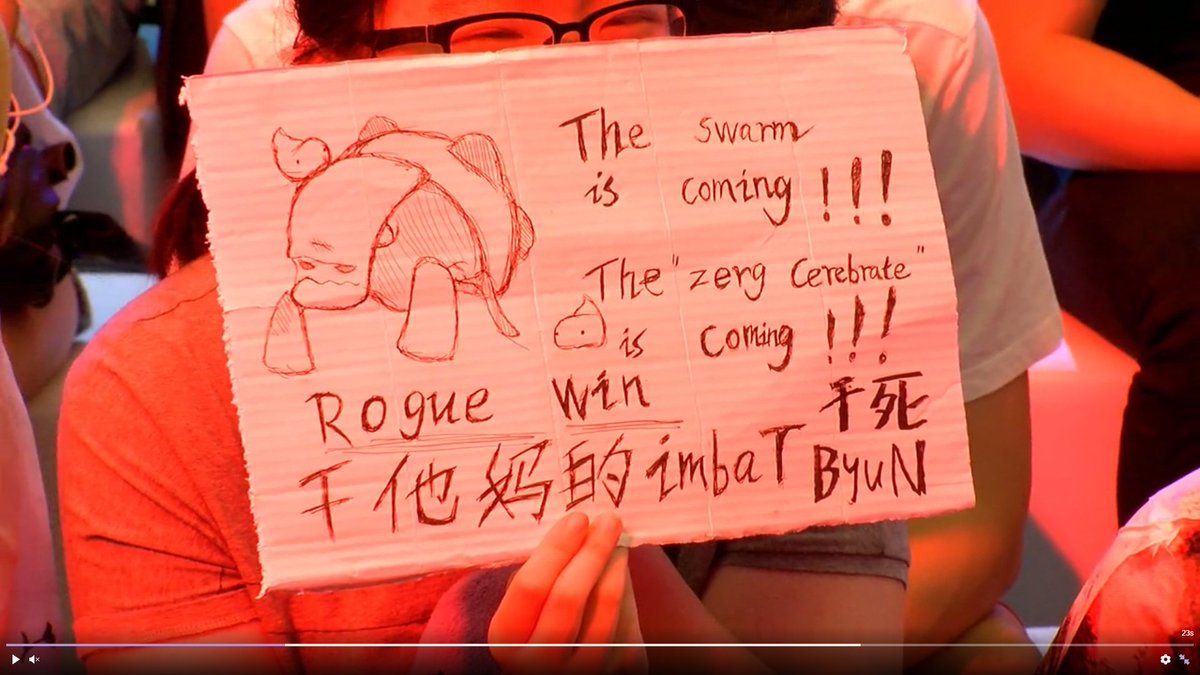 The swarm
is coming !!!
The "zerg Cerebrate"
is coming !!!
Rogue win
干死
干他妈的 imbaT ByuN
23s